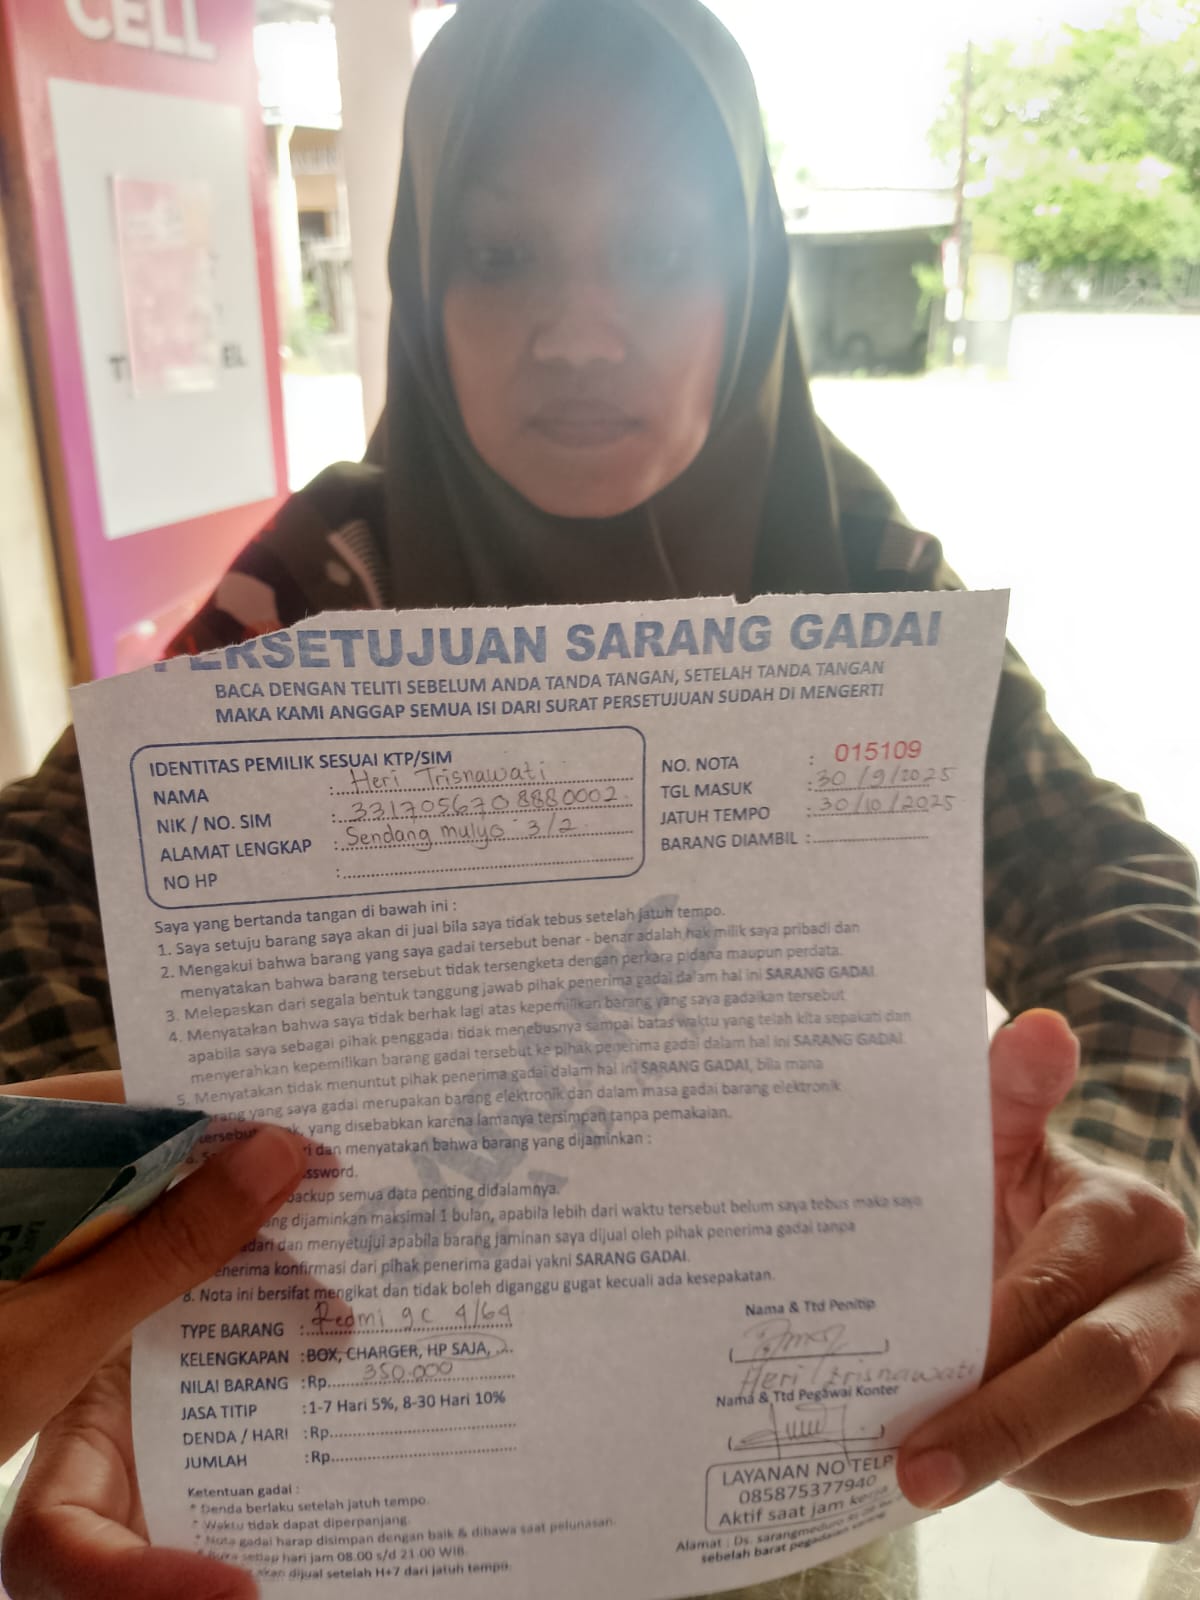 CELL
PERSETUJUAN SARANG GADAI
BACA DENGAN TELITI SEBELUM ANDA TANDA TANGAN, SETELAH TANDA TANGAN
MAKA KAMI ANGGAP SEMUA ISI DARI SURAT PERSETUJUAN SUDAH DI MENGERTI
IDENTITAS PEMILIK SESUAI KTP/SIM
NAMA : Heri Trisnawati
NIK / NO. SIM : 3317056708880002
ALAMAT LENGKAP : Sendang mulyo 3/2
NO HP :
NO. NOTA : 015109
TGL MASUK : 30/9/2025
JATUH TEMPO : 30/10/2025
BARANG DIAMBIL :
Saya yang bertanda tangan di bawah ini :
1. Saya setuju barang saya akan di jual bila saya tidak tebus setelah jatuh tempo.
2. Mengakui bahwa barang yang saya gadai tersebut benar - benar adalah hak milik saya pribadi dan
menyatakan bahwa barang tersebut tidak tersengketa dengan perkara pidana maupun perdata.
3. Melepaskan dari segala bentuk tanggung jawab pihak penerima gadai dalam hal ini SARANG GADAI.
4. Menyatakan bahwa saya tidak berhak lagi atas kepemilikan barang yang saya gadaikan tersebut
apabila saya sebagai pihak penggadai tidak menebusnya sampai batas waktu yang telah kita sepakati dan
menyerahkan kepemilikan barang gadai tersebut ke pihak penerima gadai dalam hal ini SARANG GADAI.
5. Menyatakan tidak menuntut pihak penerima gadai dalam hal ini SARANG GADAI, bila mana
barang yang saya gadai merupakan barang elektronik dan dalam masa gadai barang elektronik
tersebut yang disebabkan karena lamanya tersimpan tanpa pemakaian.
dan menyatakan bahwa barang yang dijaminkan :
ssword.
backup semua data penting didalamnya.
ang dijaminkan maksimal 1 bulan, apabila lebih dari waktu tersebut belum saya tebus maka saya
adari dan menyetujui apabila barang jaminan saya dijual oleh pihak penerima gadai tanpa
enerima konfirmasi dari pihak penerima gadai yakni SARANG GADAI.
8. Nota ini bersifat mengikat dan tidak boleh diganggu gugat kecuali ada kesepakatan.
TYPE BARANG : Redmi 9C 4/64
KELENGKAPAN : BOX, CHARGER, HP SAJA,
NILAI BARANG : Rp. 350.000
JASA TITIP : 1-7 Hari 5%, 8-30 Hari 10%
DENDA / HARI : Rp.
JUMLAH : Rp.
Nama & Ttd Penitip
Heri Trisnawati
Nama & Ttd Pegawai Konter
LAYANAN NO TELP
085875377940
Aktif saat jam kerja
Alamat : Ds. sarangmeduro
sebelah barat pegadaian sarang
Ketentuan gadai :
* Denda berlaku setelah jatuh tempo.
* Waktu tidak dapat diperpanjang.
* Nota gadai harap disimpan dengan baik & dibawa saat pelunasan.
* Buka setiap hari jam 08.00 s/d 21.00 WIB.
akan dijual setelah H+7 dari jatuh tempo.